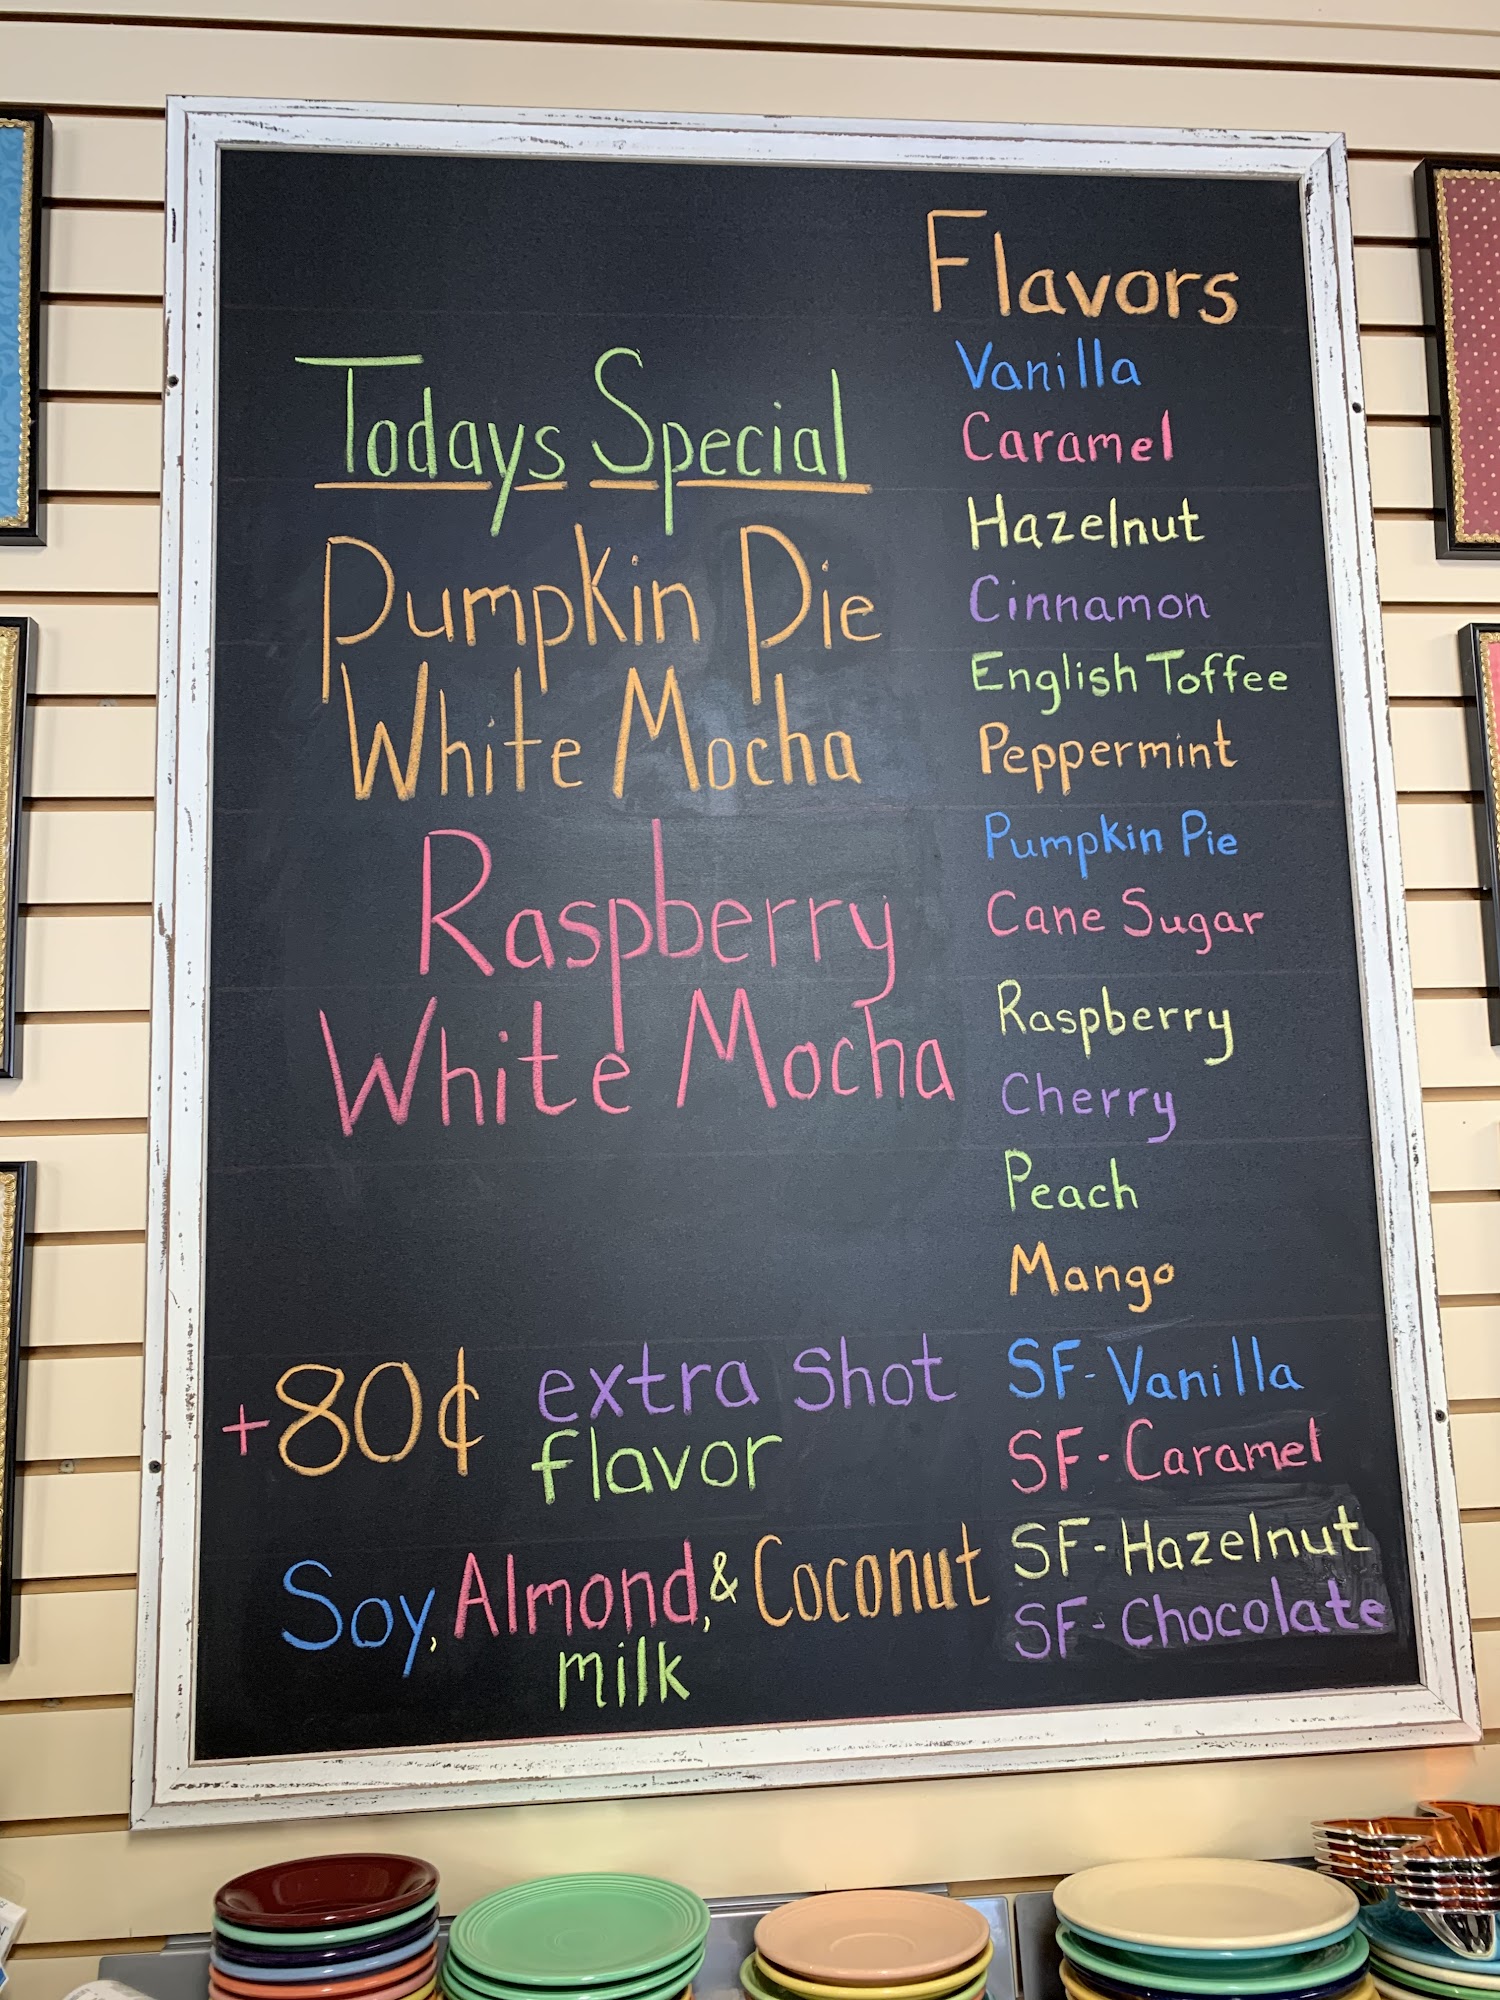 Todays Special
Pumpkin Pie
White Mocha
Raspberry
White Mocha
+80¢ extra shot
flavor
Soy, Almond, & Coconut
milk
Flavors
Vanilla
Caramel
Hazelnut
Cinnamon
English Toffee
Peppermint
Pumpkin Pie
Cane Sugar
Raspberry
Cherry
Peach
Mango
SF-Vanilla
SF-Caramel
SF-Hazelnut
SF-Chocolate